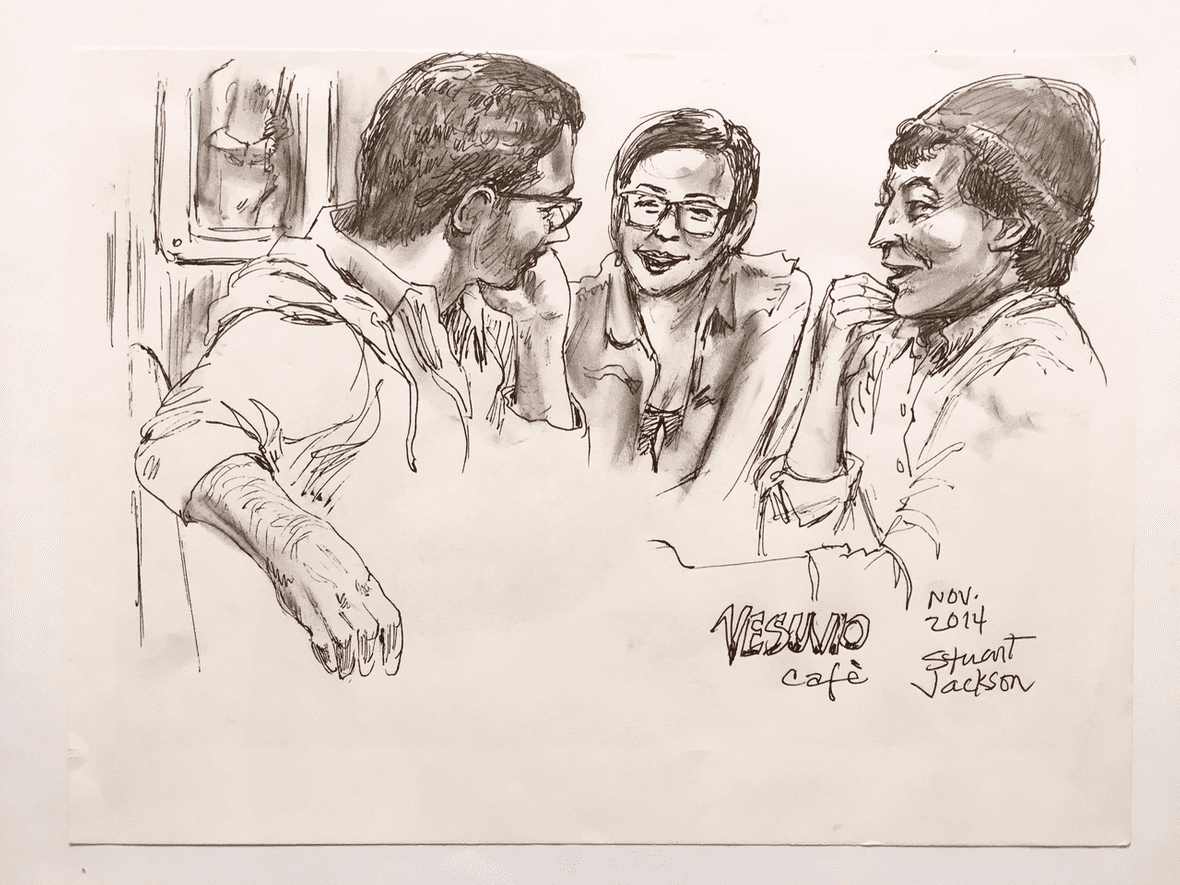 VESUVIO
cafè
NOV.
2014
Stuart
Jackson